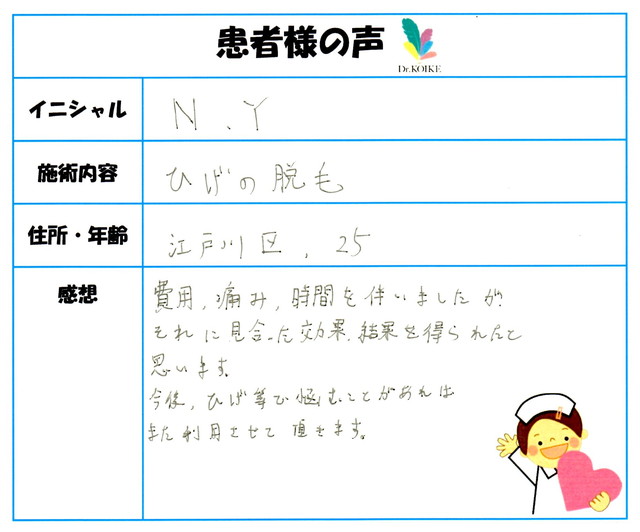 患者様の声
Dr.KOIKE
イニシャル
N.Y
施術内容
ひげの脱毛
住所・年齢
江戸川区、25
感想
費用、痛み、時間を伴いましたが、
それに見合った効果、結果を得られたと
思います。
今後、ひげ等で悩むことがあれば
また利用させて頂きます。